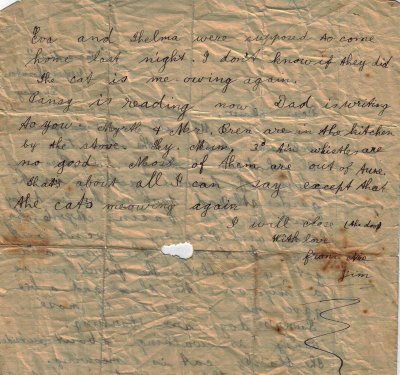 Eva and Thelma were supposed to come
home last night. I don't know if they did
The cat is meowing again.
Pansy is reading now Dad is writing
to you. Myrtle & Mrs. Oren are in the kitchen
by the stove. My, Mum, 3¢ tin whistles are
no good. Most of them are out of tune.
That's about all I can say except that
the cat's meowing again
I will close (the door)
With love
from Me
Jim